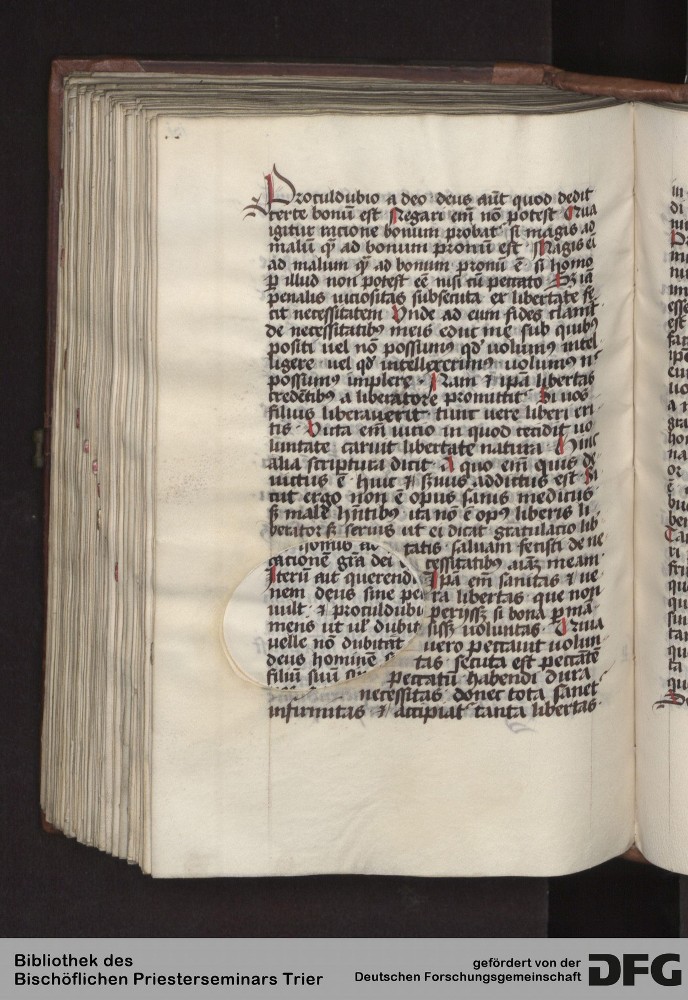 Proculdubio a deo deus aūt quod dedit
certe bonū est Negari em̄ nō potest Qua
igitur racione bonum probat᷑ si magis ad
malū qͣꝫ ad bonum pronū est Magis ei
ad malum qͣꝫ ad bonum pronū ē si homo
ꝑ illud non potest eē nisi cū peccato Sꝫ iā
penalis viciositas subsecuta ex libertate fe
cit necessitatem Vnde ad eum fides clamat
de necessitatibꝰ meis educ me sub quibꝰ
positi uel nō possumꝰ qd̕ uolumꝰ intel
ligere uel qd̕ intellexerimꝰ uolumꝰ nͨ
possumꝰ implere Nam ⁊ ipā libertas
credētibꝰ a liberatore promittit᷑ Si uos
filius liberauerit tunc vere liberi eri
tis Victa em̄ vicio in quod cecidit uo
luntate caruit libertate natura Hinc
alia scriptura dicit A quo em̄ quis de
uictus ē huic ⁊ seruus addictus est Si
cut ergo non ē opus sanis medicus
sꝫ male hn̄tibꝰ ita nō ē opꝰ liberis li
berator sꝫ seruis ut ei dicat gratulacio lib
tatis saluam fecisti de ne
cacione grā dei
cessitatibꝰ aīaꝫ meam
Iterū ait querend
Ipā em̄ sanitas ⁊ ue
nem deus sine pe
ra libertas que non
uult ⁊ proculdubi
perijssꝫ si bona ꝑma
mens ut ul̕ dubit
sissꝫ uoluntas Qua
uelle nō dubitat
uero peccauit uolun
deus hominē
tas secuta est peccātē
filiū suū
peccatū habendi dura
necessitas donec tota sanet᷑
infirmitas ⁊ accipiat᷑ tanta libertas
Bibliothek des
Bischöflichen Priesterseminars Trier
gefördert von der
Deutschen Forschungsgemeinschaft
DFG